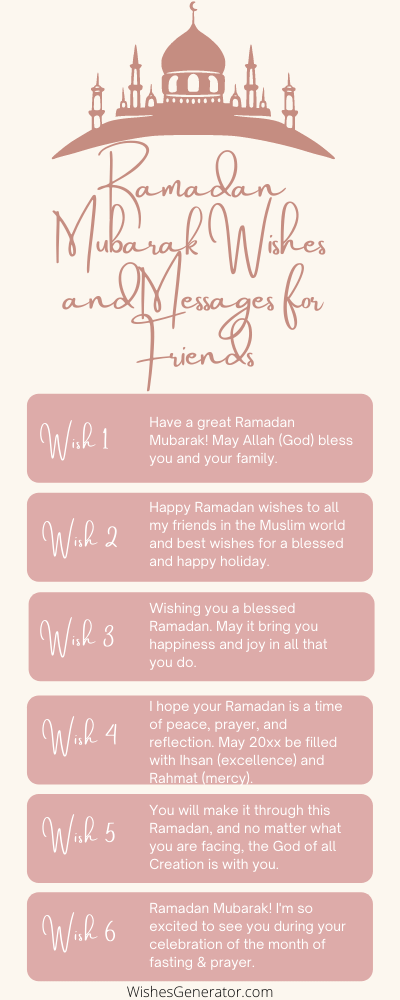 Ramadan
Mubarak Wishes
and Messages for
Friends
Wish 1
Have a great Ramadan
Mubarak! May Allah (God) bless
you and your family.
Wish 2
Happy Ramadan wishes to all
my friends in the Muslim world
and best wishes for a blessed
and happy holiday.
Wish 3
Wishing you a blessed
Ramadan. May it bring you
happiness and joy in all that
you do.
Wish 4
I hope your Ramadan is a time
of peace, prayer, and
reflection. May 20xx be filled
with Ihsan (excellence) and
Rahmat (mercy).
Wish 5
You will make it through this
Ramadan, and no matter what
you are facing, the God of all
Creation is with you.
Wish 6
Ramadan Mubarak! I'm so
excited to see you during your
celebration of the month of
fasting & prayer.
WishesGenerator.com